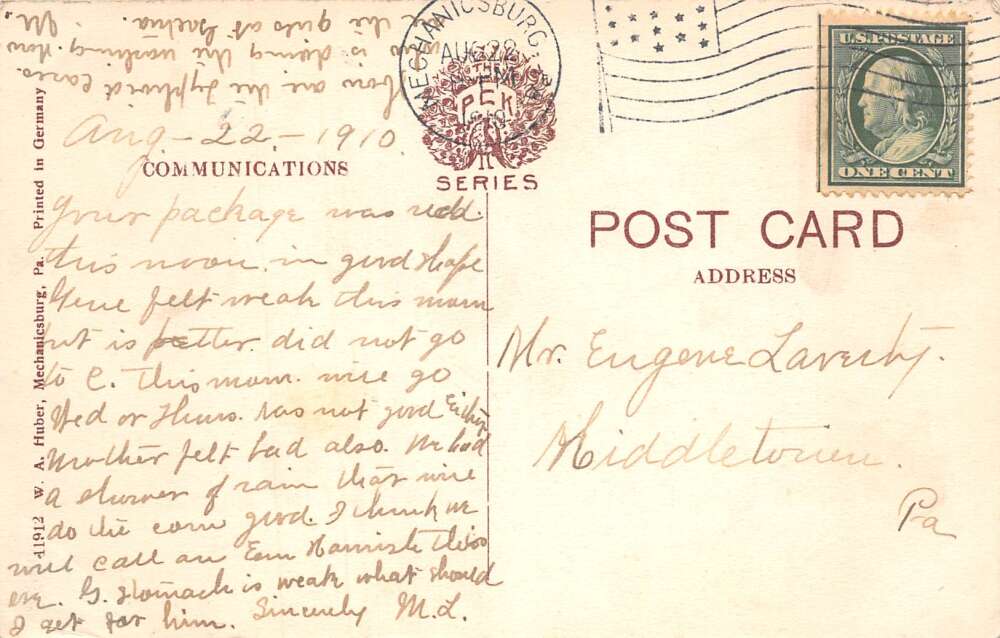 Aug - 22, - 1910.
COMMUNICATIONS
Your package was recd.
this noon in good shape
Gene felt weak this morn
but is better did not go
to C. this morn. will go
Wed or Thurs. was not good either
Mother felt bad also. We had
a shower of rain that will
do the corn good. I think we
will call on Harnish this
eve. G. stomach is weak what should
I get for him. Sincerely M.L.
How are the typhoid cases.
who is doing the washing. How
are the girls at M.
MECHANICSBURG, PA.
AUG 22
PM
1910
THE
PEK
SERIES
U.S. POSTAGE
ONE CENT
POST CARD
ADDRESS
Mr. Eugene Laverty.
Middletown.
Pa
41912 W. A. Huber, Mechanicsburg, Pa. Printed in Germany